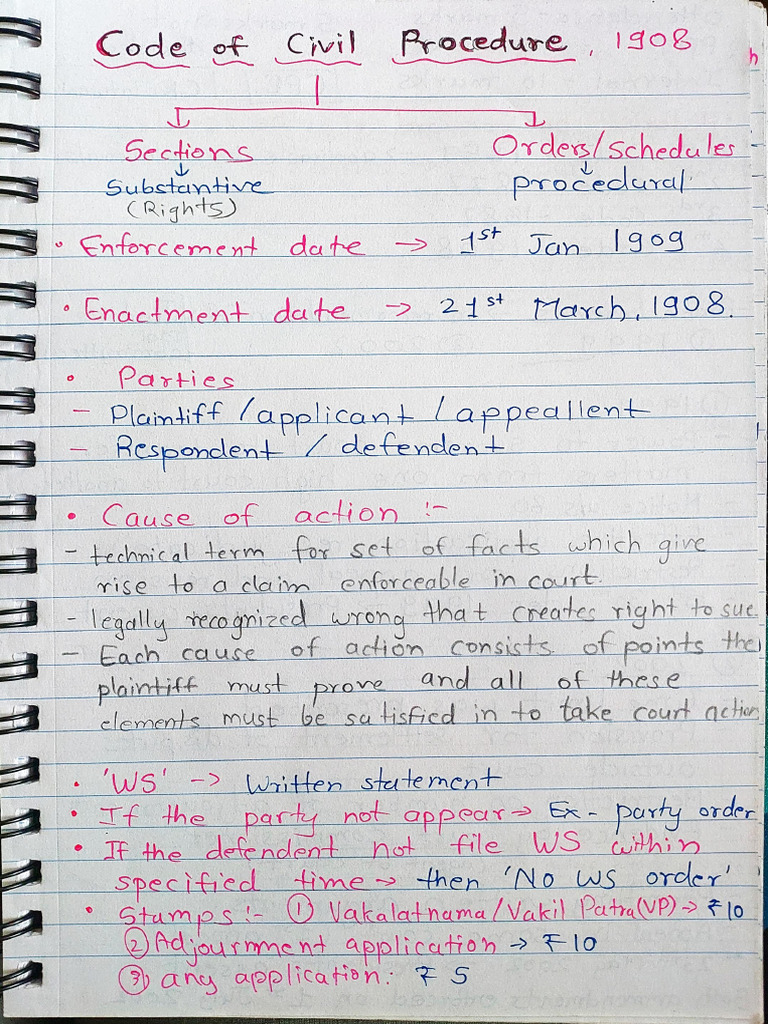 Code of Civil Procedure, 1908
Sections
Orders/Schedules
Substantive
(Rights)
procedural
• Enforcement date → 1st Jan 1909
• Enactment date → 21st March, 1908.
• Parties
- Plaintiff / applicant / appeallent
- Respondent / defendent
• Cause of action :-
- technical term for set of facts which give
rise to a claim enforceable in court.
- legally recognized wrong that creates right to sue
- Each cause of action consists of points the
plaintiff must prove and all of these
elements must be satisfied in to take court action
• 'WS' -> Written statement
• If the party not appear → Ex-party order
• If the defendent not file WS within
specified time → then 'No WS order'
• Stamps :- ① Vakalatnama/Vakil Patra(VP) → ₹10
② Adjournment application → ₹10
③ any application: ₹ 5